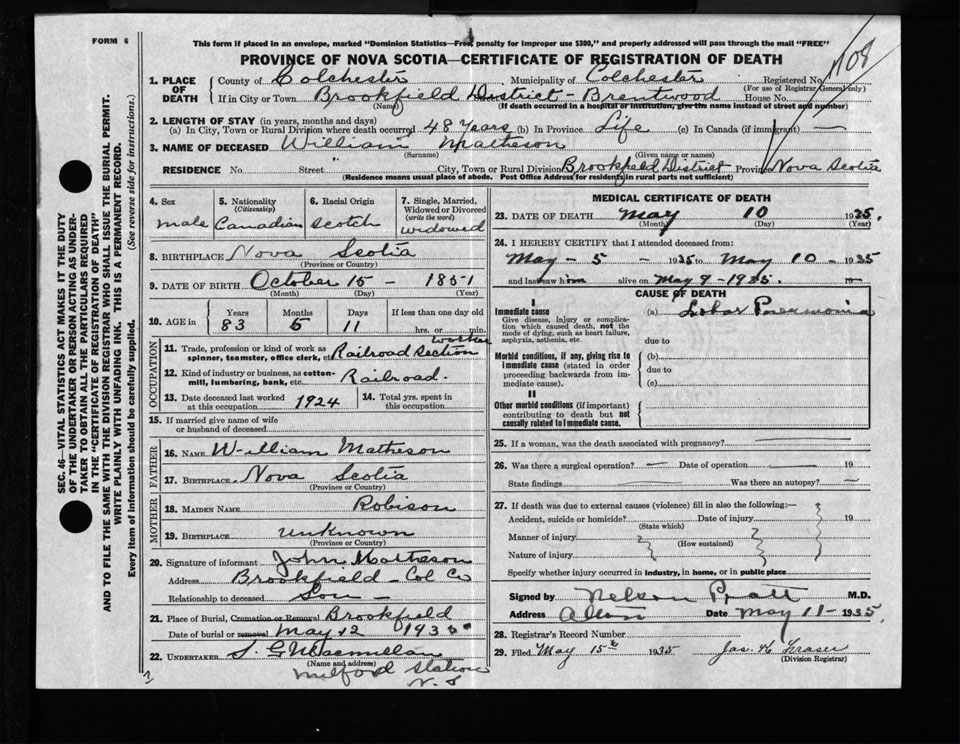 FORM 6
This form if placed in an envelope, marked "Dominion Statistics—Free, penalty for improper use $300," and properly addressed will pass through the mail "FREE"
PROVINCE OF NOVA SCOTIA—CERTIFICATE OF REGISTRATION OF DEATH
108
SEC. 46—VITAL STATISTICS ACT MAKES IT THE DUTY
OF THE UNDERTAKER OR PERSON ACTING AS UNDER-
TAKER TO OBTAIN ALL THE PARTICULARS REQUIRED
IN THE "CERTIFICATE OF REGISTRATION OF DEATH"
AND TO FILE THE SAME WITH THE DIVISION REGISTRAR WHO SHALL ISSUE THE BURIAL PERMIT.
WRITE PLAINLY WITH UNFADING INK. THIS IS A PERMANENT RECORD.
Every item of information should be carefully supplied. (See reverse side for instructions.)
1. PLACE OF DEATH County of Colchester Municipality of Colchester Registered No.
(For use of Registrar General only)
If in City or Town Brookfield District - Brentwood House No.
(Name) (If death occurred in a hospital or institution, give the name instead of street and number)
2. LENGTH OF STAY (in years, months and days)
(a) In City, Town or Rural Division where death occurred 48 Years (b) In Province Life (c) In Canada (if immigrant) —
3. NAME OF DECEASED William Matheson
(Surname) (Given name or names)
RESIDENCE No. Street City, Town or Rural Division Brookfield District Province Nova Scotia
(Residence means usual place of abode. Post Office Address for residents in rural parts not sufficient)
4. Sex
male
5. Nationality
(Citizenship)
Canadian
6. Racial Origin
Scotch
7. Single, Married,
Widowed or Divorced
(write the word)
widowed
8. BIRTHPLACE Nova Scotia
(Province or Country)
9. DATE OF BIRTH October 15 - 1851
(Month) (Day) (Year)
10. AGE in Years Months Days If less than one day old
83 6 11 hrs. or min.
OCCUPATION
11. Trade, profession or kind of work as
spinner, teamster, office clerk, etc. Railroad Section worker
12. Kind of industry or business, as cotton-
mill, lumbering, bank, etc. Railroad.
13. Date deceased last worked
at this occupation 1924
14. Total yrs. spent in
this occupation
15. If married give name of wife
or husband of deceased
FATHER
16. NAME William Matheson
17. BIRTHPLACE Nova Scotia
(Province or Country)
MOTHER
18. MAIDEN NAME Robison
19. BIRTHPLACE unknown
(Province or Country)
20. Signature of informant John Matheson
Address Brookfield - Col Co
Relationship to deceased Son -
21. Place of Burial, Cremation or Removal Brookfield
Date of burial or removal May 12 1935
22. UNDERTAKER S. G McMacmillan
(Name and address)
Milford Station
N. S
MEDICAL CERTIFICATE OF DEATH
23. DATE OF DEATH May 10 1935.
(Month) (Day) (Year)
24. I HEREBY CERTIFY that I attended deceased from:
May - 5 - 1935 to May 10 - 1935
and last saw him alive on May 9 - 1935. 19
CAUSE OF DEATH
I
Immediate cause
Give disease, injury or complica-
tion which caused death, not the
mode of dying, such as heart failure,
asphyxia, asthenia, etc.
(a) Lobar Pneumonia
due to
Morbid conditions, if any, giving rise to
immediate cause (stated in order
proceeding backwards from im-
mediate cause).
(b)
due to
(c)
II
Other morbid conditions (if important)
contributing to death but not
causally related to immediate cause.
25. If a woman, was the death associated with pregnancy? —
26. Was there a surgical operation? — Date of operation — 19
State findings Was there an autopsy? —
27. If death was due to external causes (violence) fill in also the following:—
Accident, suicide or homicide? Date of injury 19
(State which)
Manner of injury
(How sustained)
Nature of injury
Specify whether injury occurred in industry, in home, or in public place
Signed by Nelson Pratt M.D.
Address Alton Date May 11 - 1935
28. Registrar's Record Number
29. Filed May 15th 1935 Jas. K Fraser
(Division Registrar)